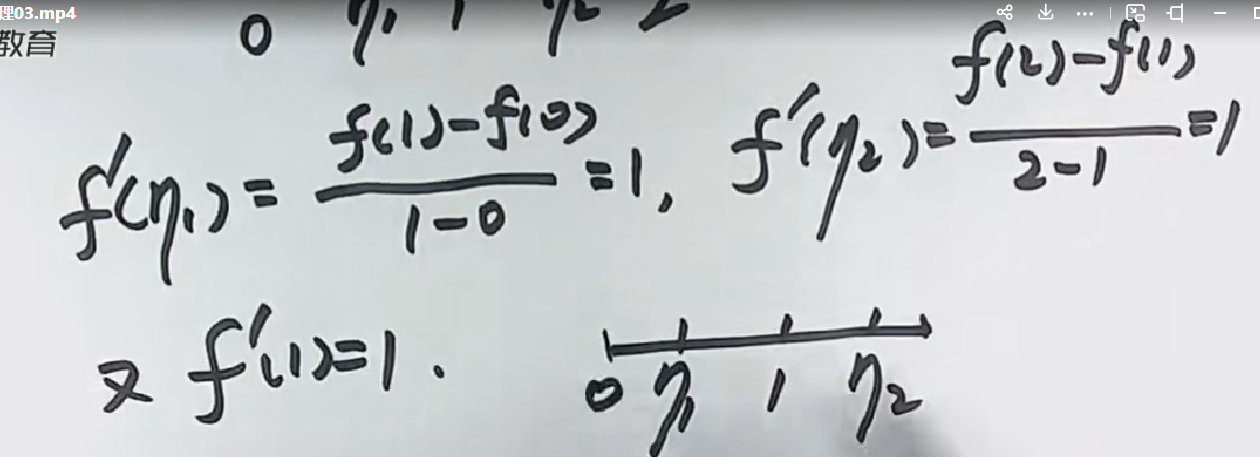 理03.mp4
教育
0 η₁ 1 η₂ 2
f'(η₁) = \frac{f(1)-f(0)}{1-0} = 1, f'(η₂) = \frac{f(2)-f(1)}{2-1} = 1
又 f'(1)=1.
0 η₁ 1 η₂